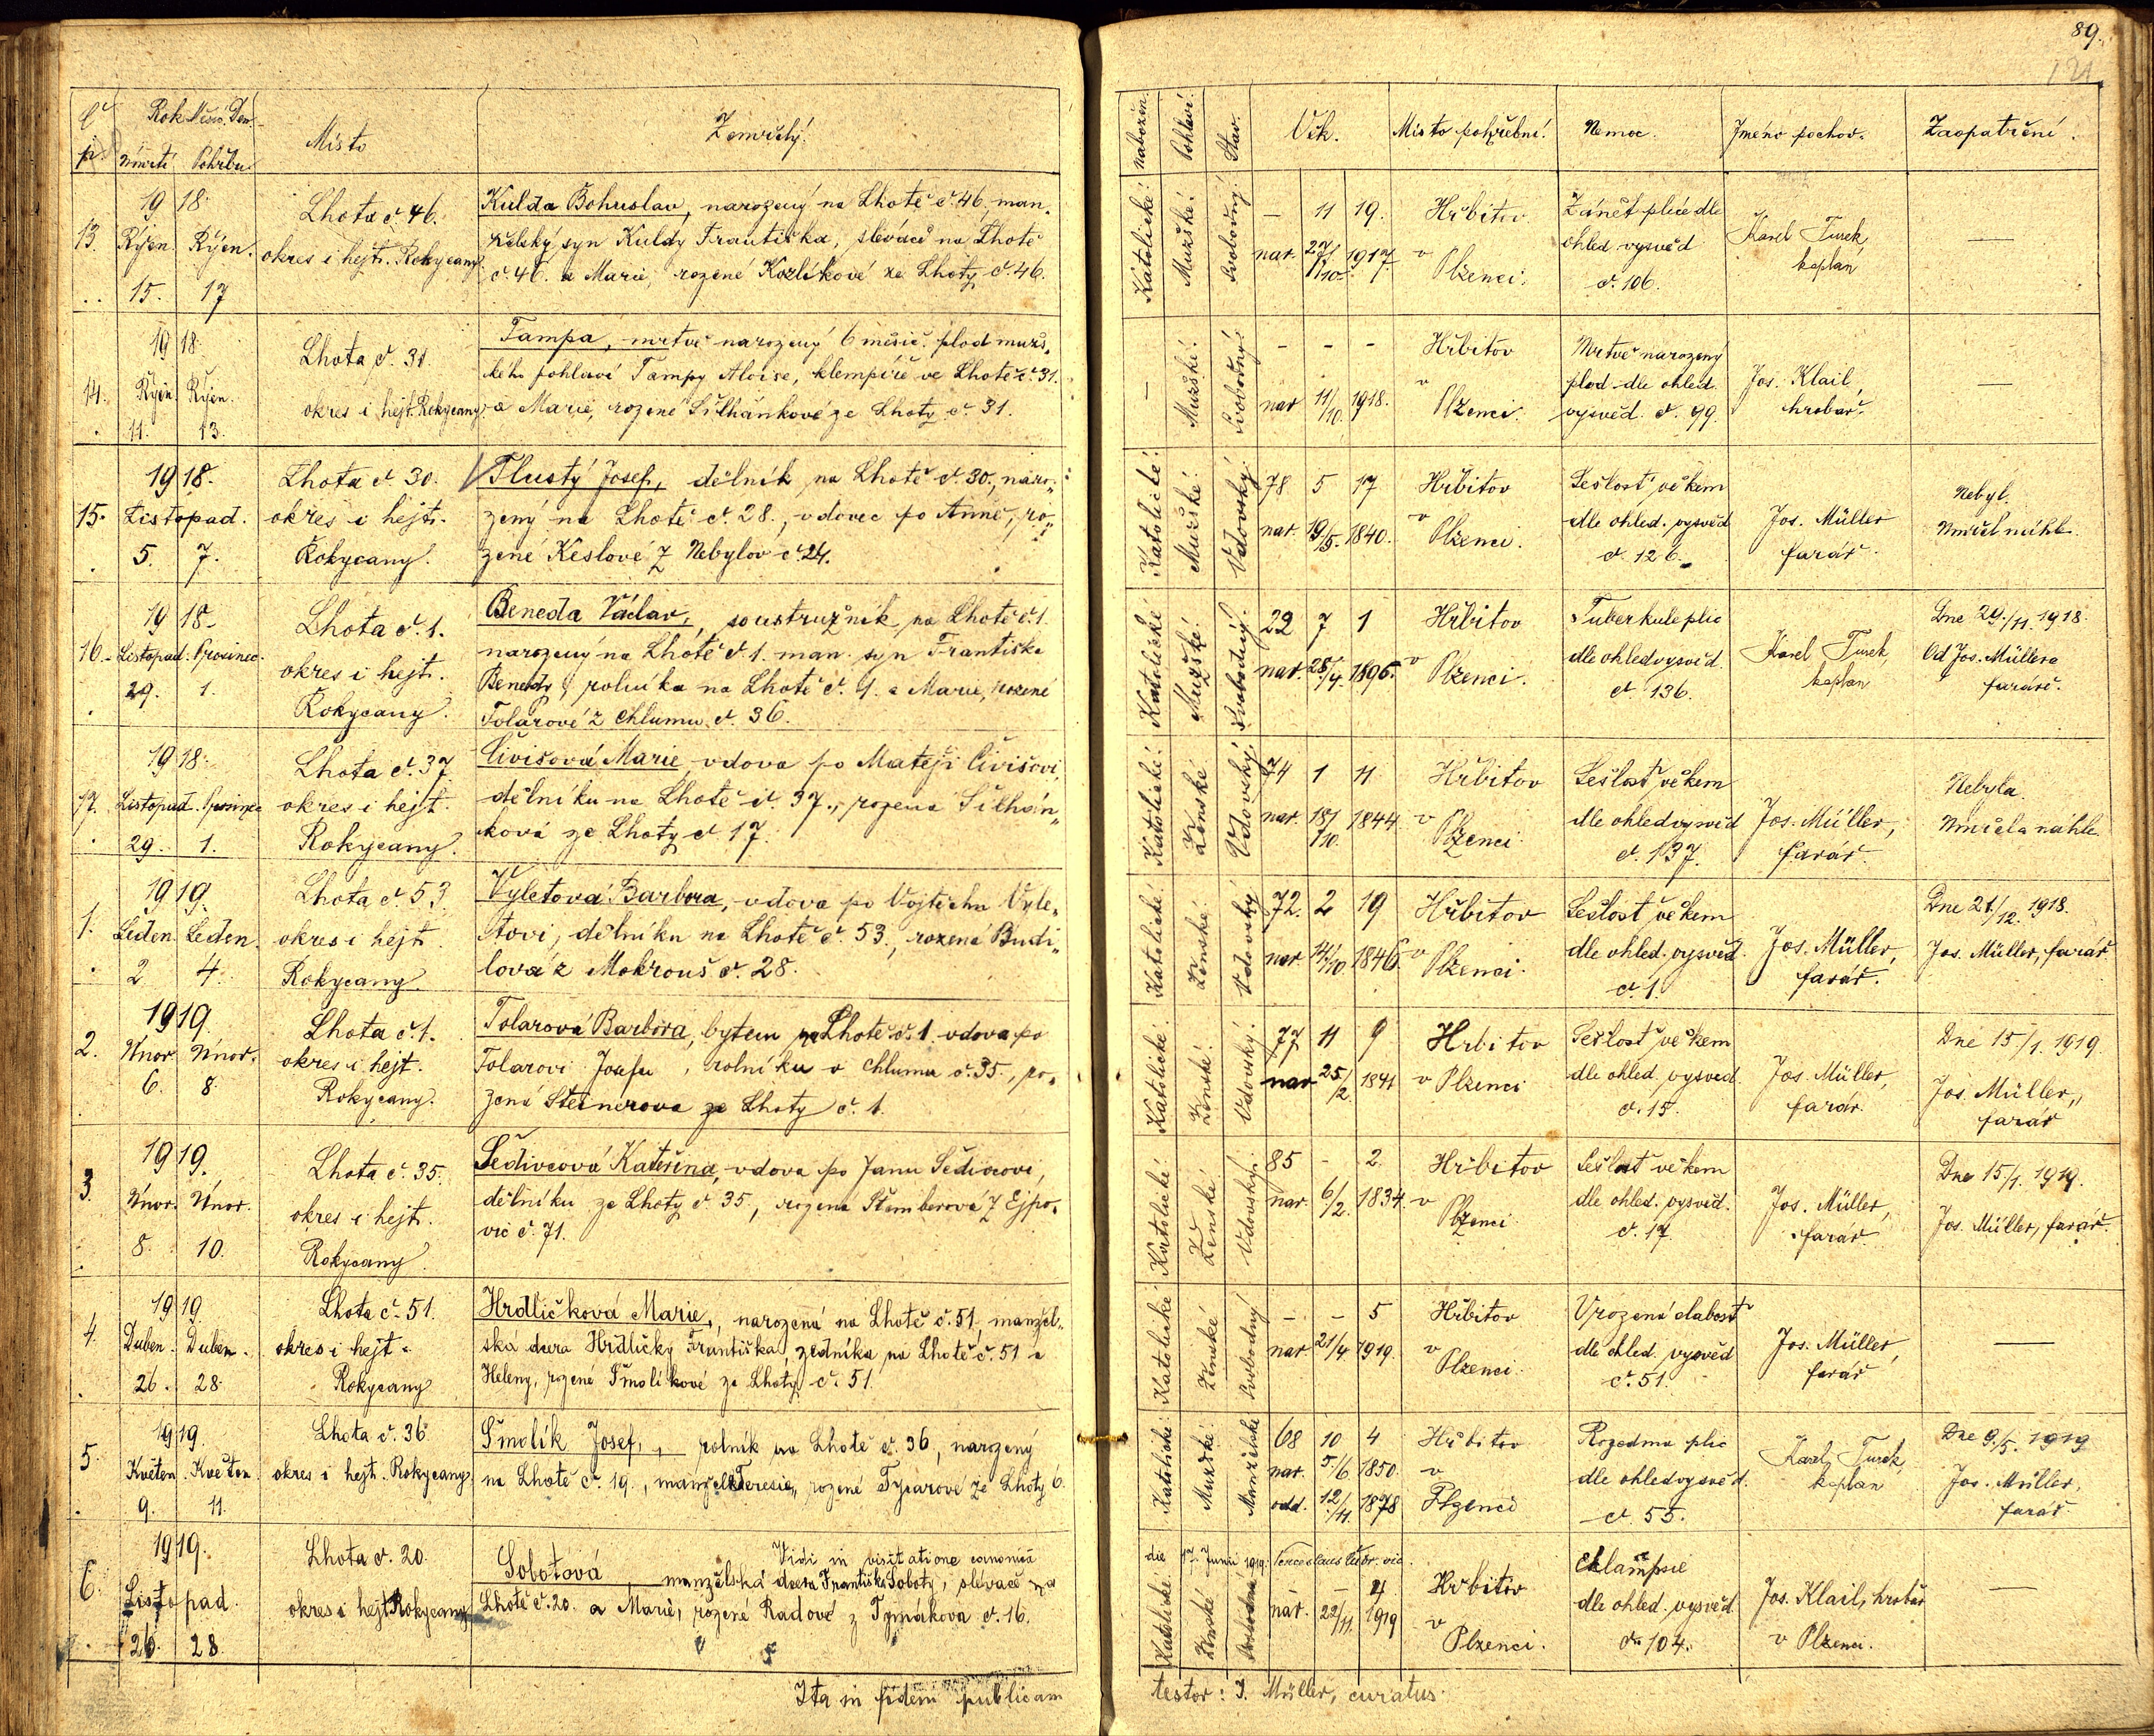 89.
121
č. p. Rok Měsíc Den úmrtí Pohřbu Místo Zemřelý.
Nábožen. Pohlaví. Stav. Věk. Místo pohřební. Nemoc. Jméno pochov. Zaopatření.
1918. Lhota č. 46. Kulda Bohuslav, narozený na Lhotě č. 46, man-
13. Říjen. Říjen. okres i hejt. Rokycany. želský syn Kuldy Františka, slévače na Lhotě
15. 17 č. 46. a Marie, rozené Kozlíkové ze Lhoty č. 46.
Katolické. Mužské. Svobodný. — 11 19. Hřbitov Zánět plíce dle Karel Turek, —
nar. 27/10. 1917. v Plzenci. ohled. vysvěd kaplan
č. 106.
1918. Lhota č. 31. Tampa, mrtvě narozený 6 měsíč. plod muž-
14. Říjen. Říjen. okres i hejt. Rokycany. ského pohlaví Tampy Aloise, klempíře ve Lhotě č. 31.
11. 13. a Marie, rozené Šilhánkové ze Lhoty č. 31.
— Mužské. Svobodný. - - - Hřbitov Mrtvě narozený Jos. Klail, —
nar 11/10. 1918. v Plzenci. plod dle ohled. hrobař.
vysvěd. č. 99.
1918. Lhota č. 30. Tlustý Josef, dělník na Lhotě č. 30., naro-
15. Listopad. okres i hejt. zený na Lhotě č. 28., vdovec po Anně, ro-
5. 7. Rokycany. zené Keslové z Nebylov č. 24.
Katolické. Mužské Vdovský. 78 5 17 Hřbitov Sešlost věkem Jos. Müller Nebyl.
nar. 19/5. 1840. v Plzenci. dle ohled. vysvěd farář. Umřel náhle.
č. 126.
1918. Lhota č. 1. Beneda Václav, soustružník na Lhotě č. 1.
16. Listopad. Prosinec. okres i hejt. narozený na Lhotě č. 1. man. syn Františka
29. 1. Rokycany. Benedy, rolníka na Lhotě č. 1. a Marie, rozené
Tolarové z Chlumu č. 36.
Katolické Mužské. Svobodný. 22 7 1 Hřbitov Tuberkule plic Karel Turek, Dne 29./11. 1918.
nar. 28/4. 1896. v Plzenci. dle ohled vysvěd. kaplan Od Jos. Müllera
č. 136. faráře.
1918. Lhota č. 37. Čivišová Marie, vdova po Matěji Čivišovi,
17. Listopad. Prosinec okres i hejt. dělníku na Lhotě č. 37., rozená Šilhán-
29. 1. Rokycany. ková ze Lhoty č. 17.
Katolické. Ženské. Vdovský. 74 1 11 Hřbitov Sešlost věkem Jos. Müller, Nebyla.
nar. 18/10. 1844 v Plzenci. dle ohled vysvěd farář. Umřela náhle
č. 137.
1919. Lhota č. 53. Vyletová Barbora, vdova po Vojtěchu Vyle-
1. Leden. Leden. okres i hejt. tovi, dělníku na Lhotě č. 53., rozená Budi-
2 4. Rokycany. lová z Mokrouš č. 28.
Katolické. Ženské. Vdovský 72. 2 19 Hřbitov Sešlost věkem Jos. Müller, Dne 21/12. 1918.
nar. 14/10. 1846. v Plzenci. dle ohled. vysvěd. farář. Jos. Müller, farář
č. 1.
1919. Lhota č. 1. Tolarová Barbora, bytem na Lhotě č. 1. vdova po
2. Únor. Únor. okres i hejt. Tolarovi Josefu, rolníku v Chlumu č. 35., ro-
6. 8. Rokycany. zená Steinerova ze Lhoty č. 1.
Katolické. Ženské. Vdovský. 77 11 9 Hřbitov Sešlost věkem Jos. Müller, Dne 15/1. 1919.
nar. 25/2. 1841 v Plzenci dle ohled. vysvěd farár. Jos. Müller,
č. 15. farář
1919. Lhota č. 35. Šedivcová Kateřina, vdova po Janu Šedivcovi,
3. Únor. Únor. okres i hejt. dělníku ze Lhoty č. 35, rozená Štemberová z Ejpo-
8. 10. Rokycany. vic č. 71.
Katolické. Ženské. Vdovský. 85 - 2. Hřbitov Sešlost věkem Jos. Müller, Dne 15/1. 1919.
nar. 6/2. 1834. v Plzenci dle ohled. vysvěd. farář Jos. Müller, farář.
č. 17.
1919. Lhota č. 51. Hrdličková Marie, narozená na Lhotě č. 51. manžel-
4. Duben. Duben. okres i hejt. ská dcera Hrdličky Františka, zedníka na Lhotě č. 51 a
26. 28. Rokycany Heleny, rozené Šmolíkové ze Lhoty č. 51.
Katolické Ženské Svobodný - - 5 Hřbitov Vrozená slabost Jos. Müller, —
nar. 21/4. 1919. v Plzenci. dle ohled. vysvěd farář
č. 51.
1919. Lhota č. 36 Šmolík Josef, rolník na Lhotě č. 36, narozený
5. Květen. Květen. okres i hejt. Rokycany na Lhotě č. 19., manžel Teresie, rozené Tycarové ze Lhoty 6.
9. 11.
Katolické. Mužské. Manželské 68 10 4 Hřbitov Rozedma plic Karel Turek, Dne 9./5. 1919
nar. 5./6. 1850. v dle ohled vysvěd. kaplan Jos. Müller,
odd. 12/11. 1878 Plzenci č. 55. farář
1919. Lhota č. 20. Vidi in visitatione canonica
6. Listopad. okres i hejt Rokycany Sobotová, manželská dcera Františka Soboty, slévače na
26. 28. Lhotě č. 20. a Marie, rozené Radové z Tymákova č. 16.
die 17. Junii 1919. Venceslaus
Katolické Ženské Svobodná - 4 Hřbitov Eklampsie Jos. Klail, hrobař —
nar. 22/11. 1919 v Plzenci. dle ohled. vysvěd v Plzenci.
č. 104.
Ita in fidem publicam
testor: J. Müller, curatus.